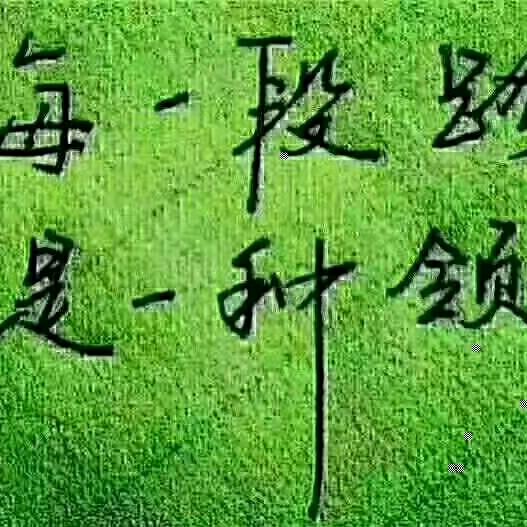 每一段路
是一种领